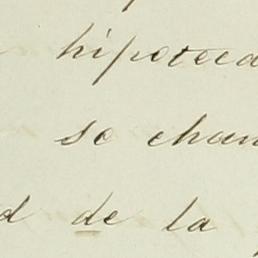 hipoteca
se chan
d de la